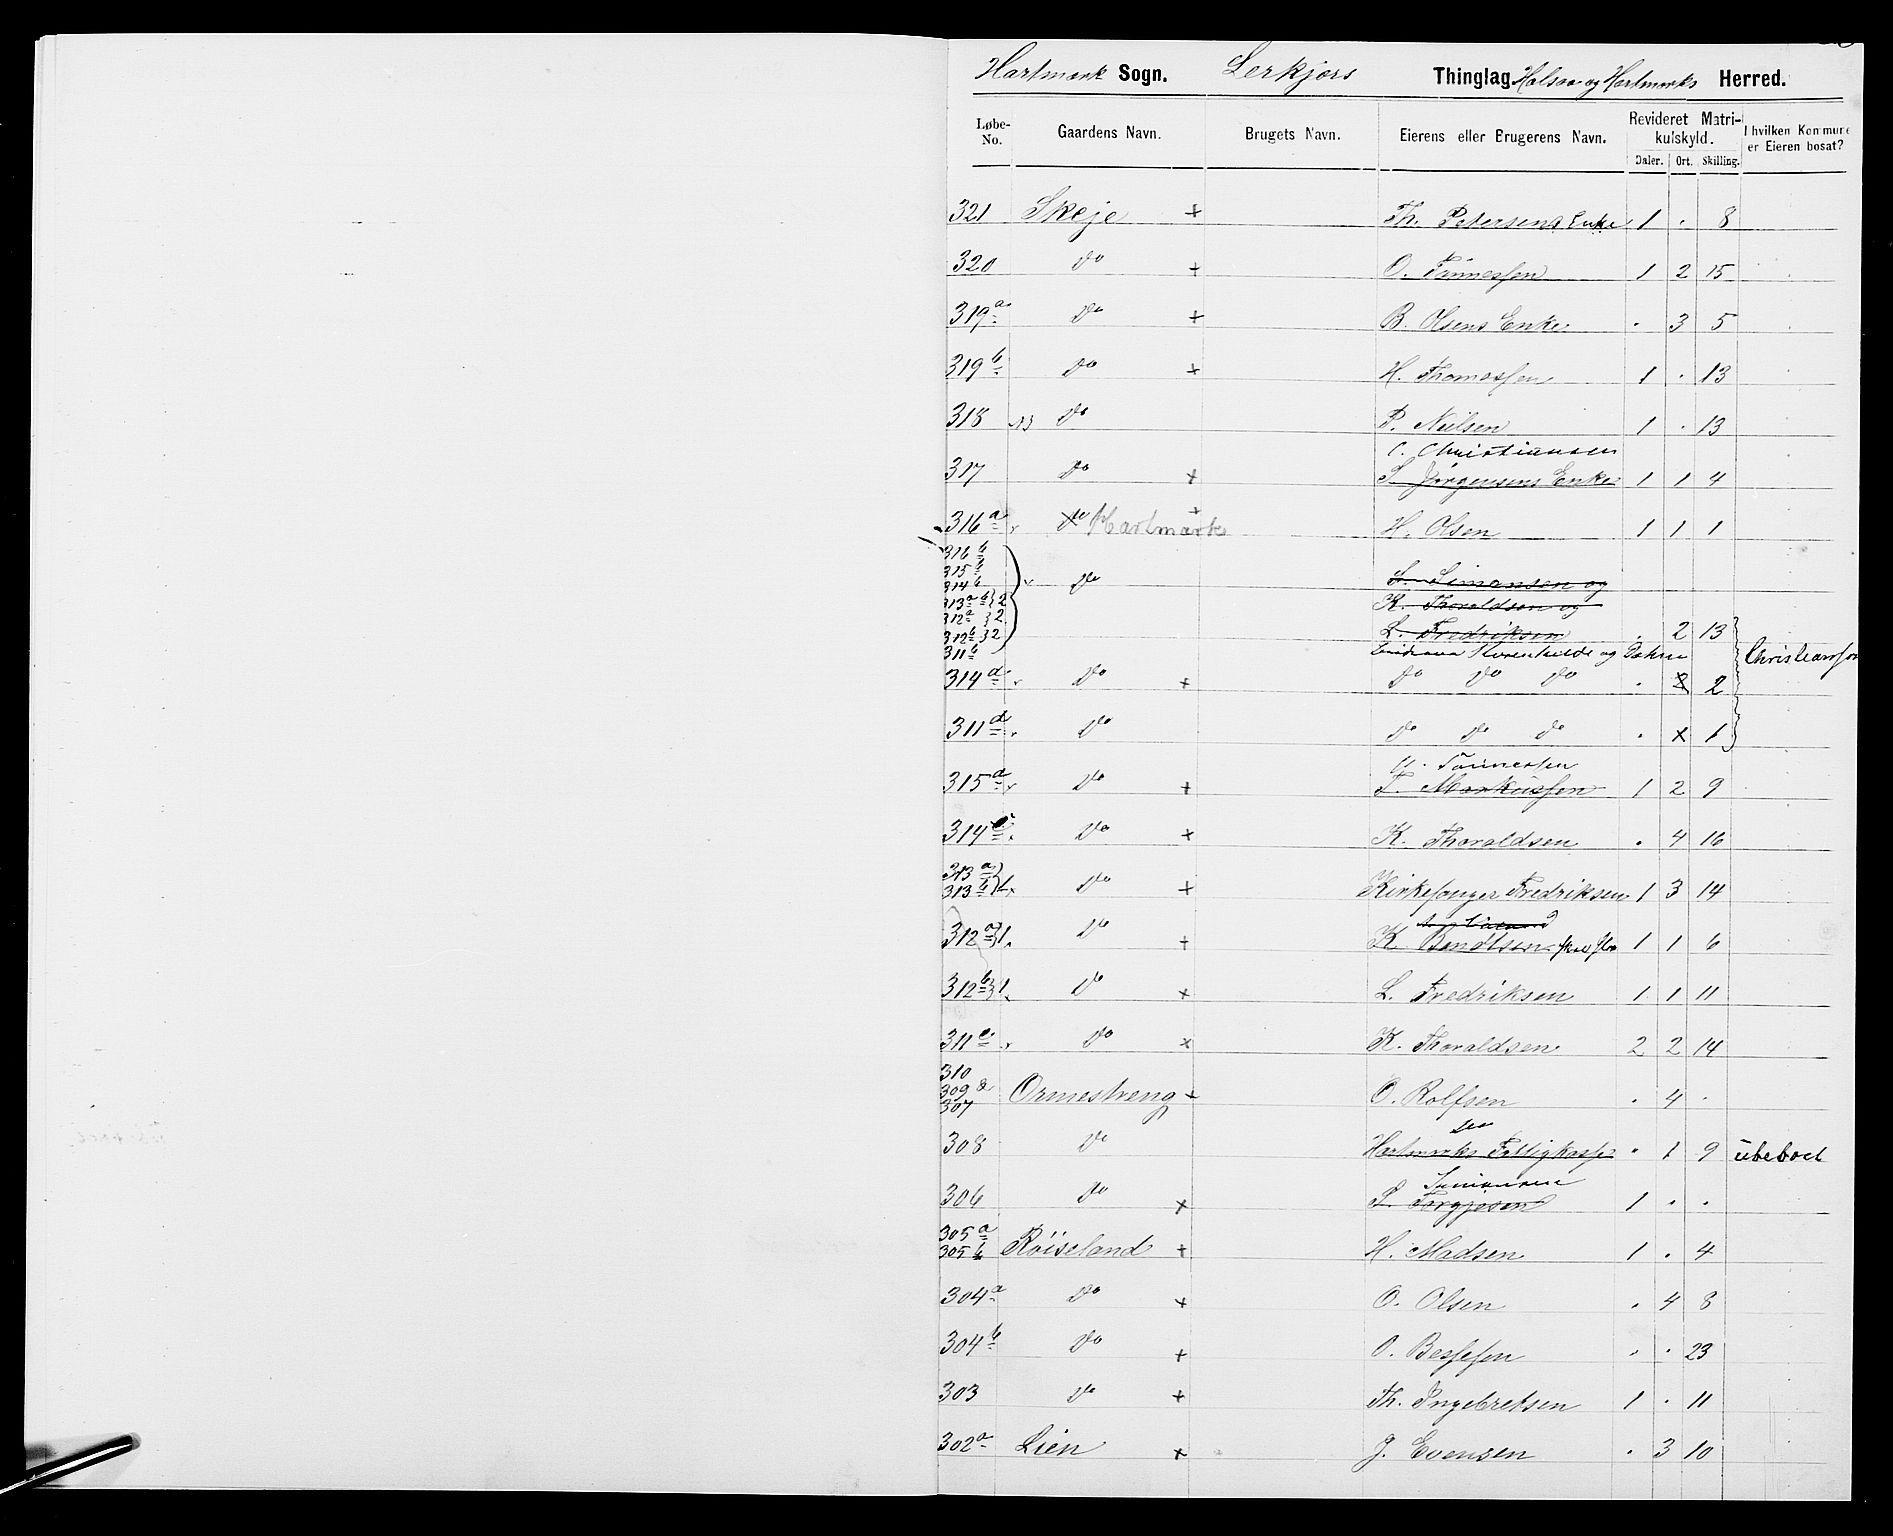 Hartmark Sogn. Lerkjærs Thinglag Halsaa og Hartmarks Herred.
Løbe-No. Gaardens Navn. Brugets Navn. Eierens eller Brugerens Navn. Revideret Matrikulskyld. I hvilken Kommune er Eieren bosat?
Daler. Ort. Skilling.
321 Skeje + Th. Petersens Enke 1 . 8
320 Do + O. Tønnessen 1 2 15
319 a Do + B. Olsens Enke . 3 5
319 b Do + H. Thomassen 1 . 13
318 Do P. Nielsen 1 . 13
Christiansen
317 Do + S. Jørgensens Enke 1 1 4
316 a Do Hartmark + H. Olsen 1 1 1
316 b
315 b
314 b Do S. Simonsen og
313 a b } 2 K. Thoraldsen og
312 a } 2
312 b } 2 L. Fredriksen . 2 13
311 b og Christiansen
314 d Do + Do Do Do . 2 2
311 d Do Do Do Do . x 1
Tønnessen
315 a Do + T. Markussen 1 2 9
314 c Do + K. Thoraldsen . 4 16
313 a
313 b } 1 Do + Kirkesanger Fredriksen 1 3 14
312 a } 1 Do + K. Bendtsen 1 1 6
312 b } 1 Do + L. Fredriksen 1 1 11
311 c Do x K. Thoraldsen 2 2 14
310
309 a
307 Ormestreng + O. Rolfsen . 4 .
308 Do Hartmarks Fattigkasse . 1 9 ubeboet
Simonsen
306 Do x Torgjesen 1 . .
305 a
305 b Röiseland + H. Madsen 1 . 4
304 a Do + O. Olsen . 4 8
304 b Do + O. Bessesen . . 23
303 Do + Th. Ingebretsen 1 . 11
302 a Lien + J. Evensen . 3 10